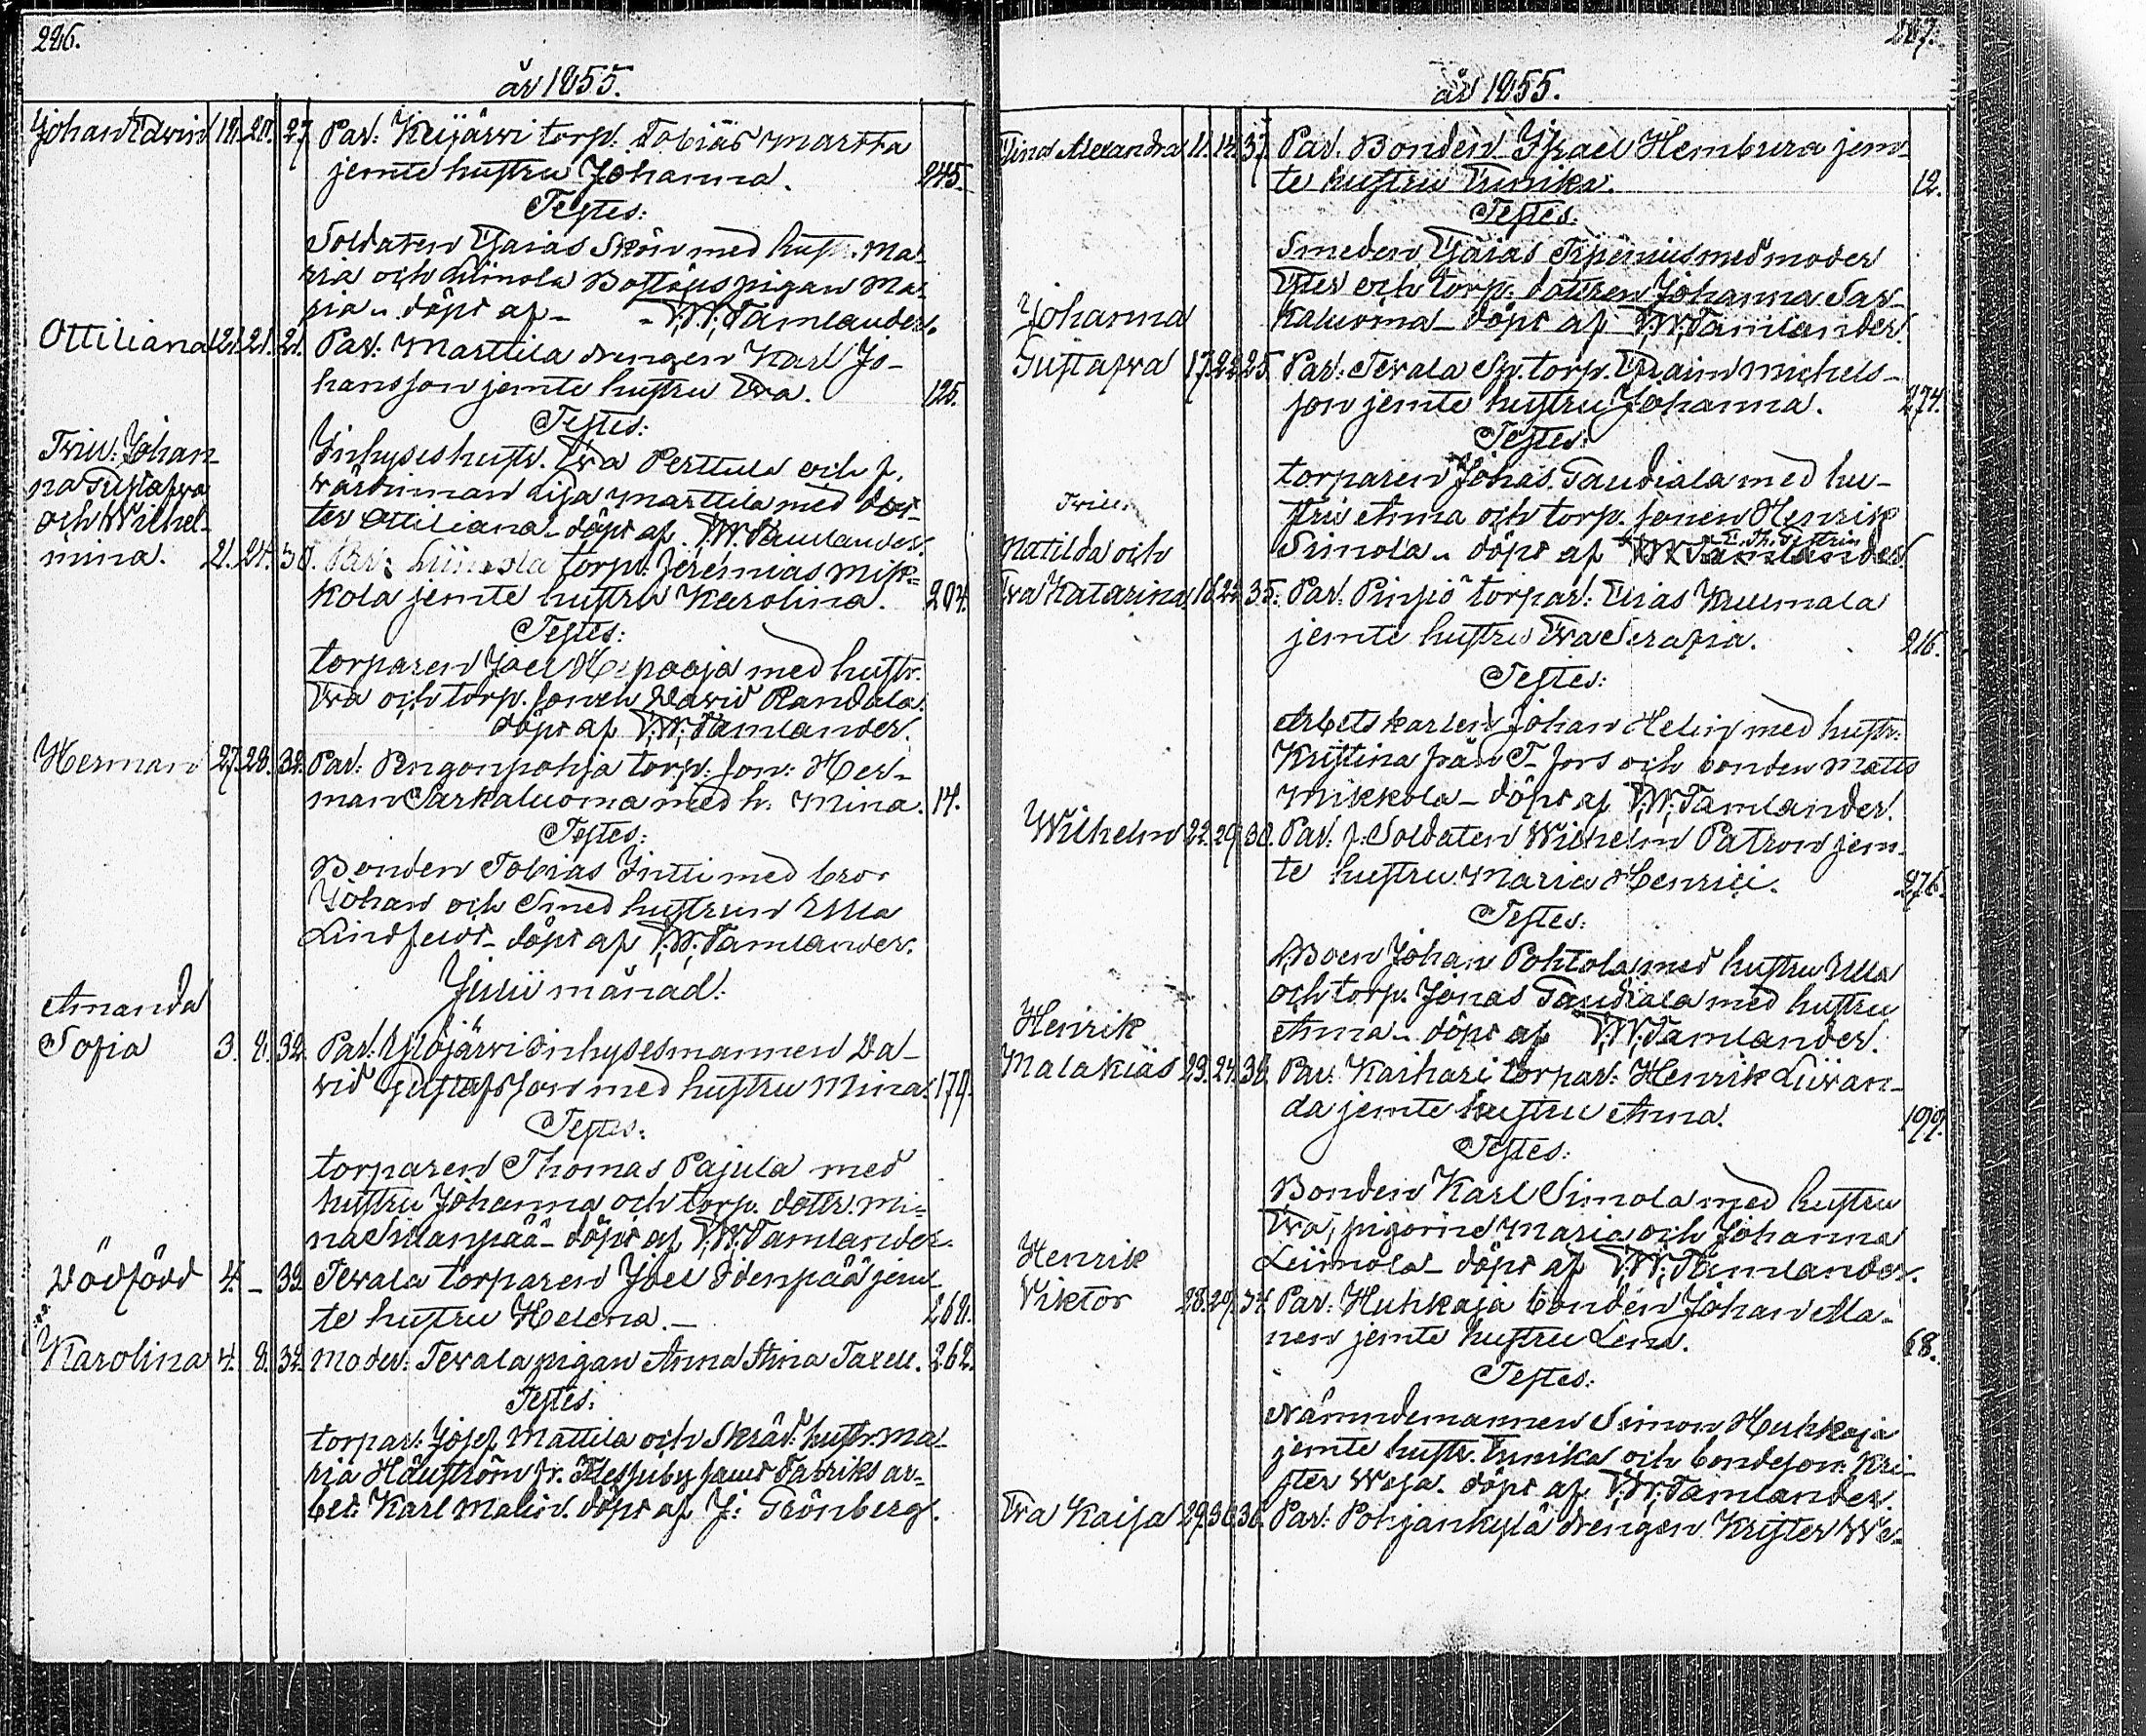 226.
år 1855.
Johan Edvin 18. 20. 27. Par: Keijärvi torp: Tobias Martta
jemte hustru Johanna. 245.
Testes:
Soldaten Esaias Skön med hustr. Ma-
ria och Liinola Boställspigan Ma-
ria - döpt af - W. W. Tamlander.
Ottiliana 21. 21. 21. Par: Marttila drengen Karl Jo-
hansson jemte hustru Eva. 125.
Testes:
Inhyseshustr. Eva Perttula och f.
värdinnan Lisa Marttila med dot-
ter Ottiliana - döpt af W. W. Tamlander.
Trill: Johan-
na Gustafva
och Wilhel-
mina. 21. 24. 30. Par: Liinola torp: Jeremias Mik-
kola jemte hustru Karolina. 204.
Testes:
torparen Joel Hepooja med hustr.
Eva och torp. sonen David Randala.
döpt af W. W. Tamlander.
Herman 27. 28. 32. Par: Pengonpohja torp: son: Her-
man Sarkaluoma med h. Mina. 14.
Testes:
Bonden Tobias Intti med bror
Johan och Smed hustrun Ulla
Lindfelt - döpt af W. W. Tamlander.
Julii månad:
Amanda
Sofia 3. 8. 32. Par: Ylöjärvi Inhysesmannen Da-
vid Gustafsson med hustru Mina. 179.
Testes:
torparen Thomas Pajula med
hustru Johanna och torp. dottr. Mi-
na Sillanpää - döpt af W. W. Tamlander.
Dödfödd 4. - 32. Tevala torparen Joel Idenpää jem-
te hustru Helena. - 268.
Karolina 4. 8. 32. Moder: Tevala pigan Anna Stina Taxell. 262.
Testes:
torpar: Josef Mattila och Skräd: hustr. Ma-
ria Häggström fr. samt Fabriks ar-
bet: Karl Malin. döpt af J: Grönberg.
227.
år 1855.
Tina Alexandra 11. 14. 37. Par. Bonden Israel Hembura jem-
te hustru Eunika. 12.
Testes:
Smeden Esaias med moder
Ester och torp. dottren Johanna Sar-
kaluoma - döpt af W. W. Tamlander.
Johanna
Gustafva 17. 22. 25. Par: Tevala Sp. torp. Efraim Michels-
son jemte hustru Johanna. 274.
Testes:
torparen Johas Taudiala med hu-
stru Anna och torp. sonen Henrik
Simola - döpt af W. W. Tamlander.
Trill:
Matilda och
Eva Katarina 16. 22. 35. Par: Pinsiö torpar: Elias Kuumala
jemte hustru Eva Serafia. 216.
Testes:
Arbetskarlen Johan Helin med hustr:
Kristina från T. fors och bonden Matts
Mikkola - döpt af W. W. Tamlander.
Wilhelm 22. 29. 38. Par: f. Soldaten Wilhelm Patron jem-
te hustru Maria Henrici. 276.
Testes:
Boen Johan Pohtola med hustru Ulla
och torp. Jonas Taudiala med hustru
Anna - döpt af W. W. Tamlander.
Henrik
Malakias 23. 24. 38. Par: Kaihari torpar: Henrik Liivan-
da jemte hustru Anna. 199.
Testes:
Bonden Karl Simola med hustru
Eva, pigorne Maria och Johanna
Liimola - döpt af W. W. Tamlander.
Henrik
Viktor 28. 29. 34. Par: Huhkaja bonden Johan Ma-
nen jemte hustru Lena. 68.
Testes:
Nämndemannen Simon Huhkaja
jemte hustr. Eunika och bondeson: Kri-
ster Weja. döpt af W. W. Tamlander.
Eva Kaisa 29. 30. 38. Par: Pohjankylä drengen Krister We-